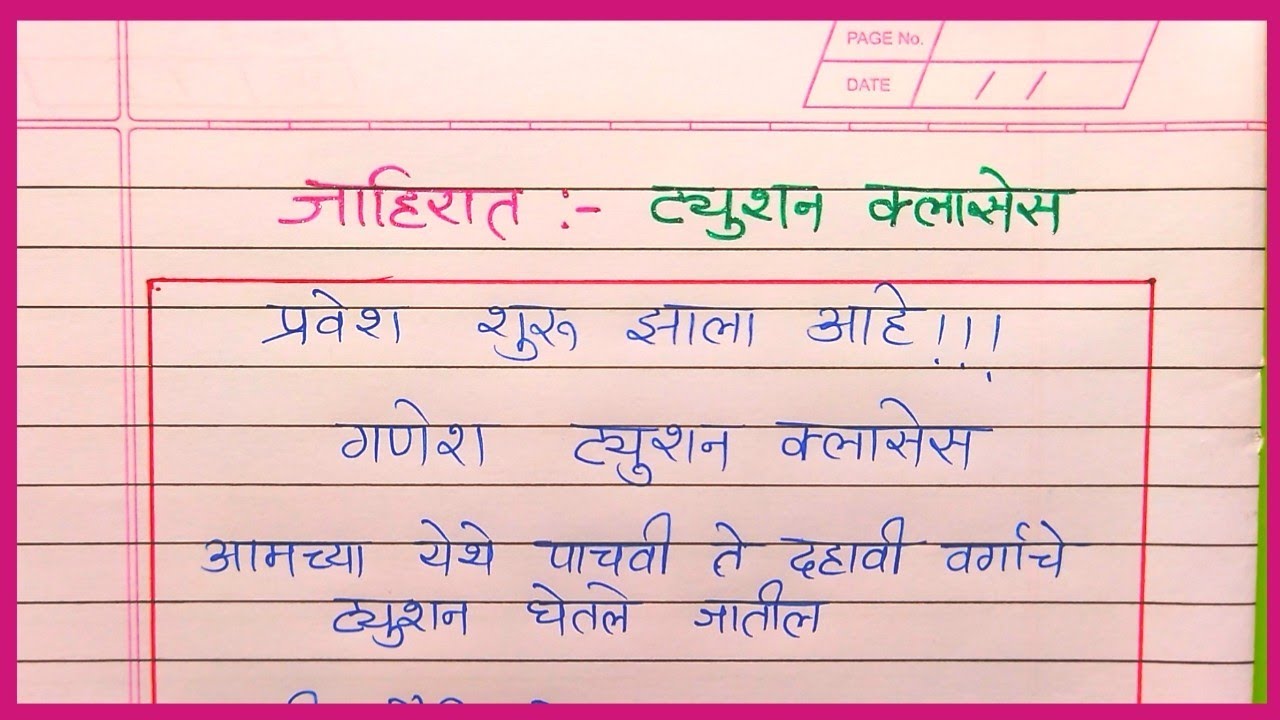 PAGE No.
DATE / /
जाहिरात :- ट्युशन क्लासेस
प्रवेश शुरू झाला आहे!!!
गणेश ट्युशन क्लासेस
आमच्या येथे पाचवी ते दहावी वर्गाचे
ट्युशन घेतले जातील